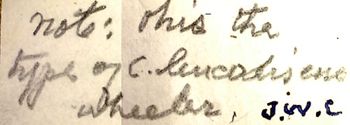 note: this the
type of C. leucodiscus
Wheeler, J.W.C